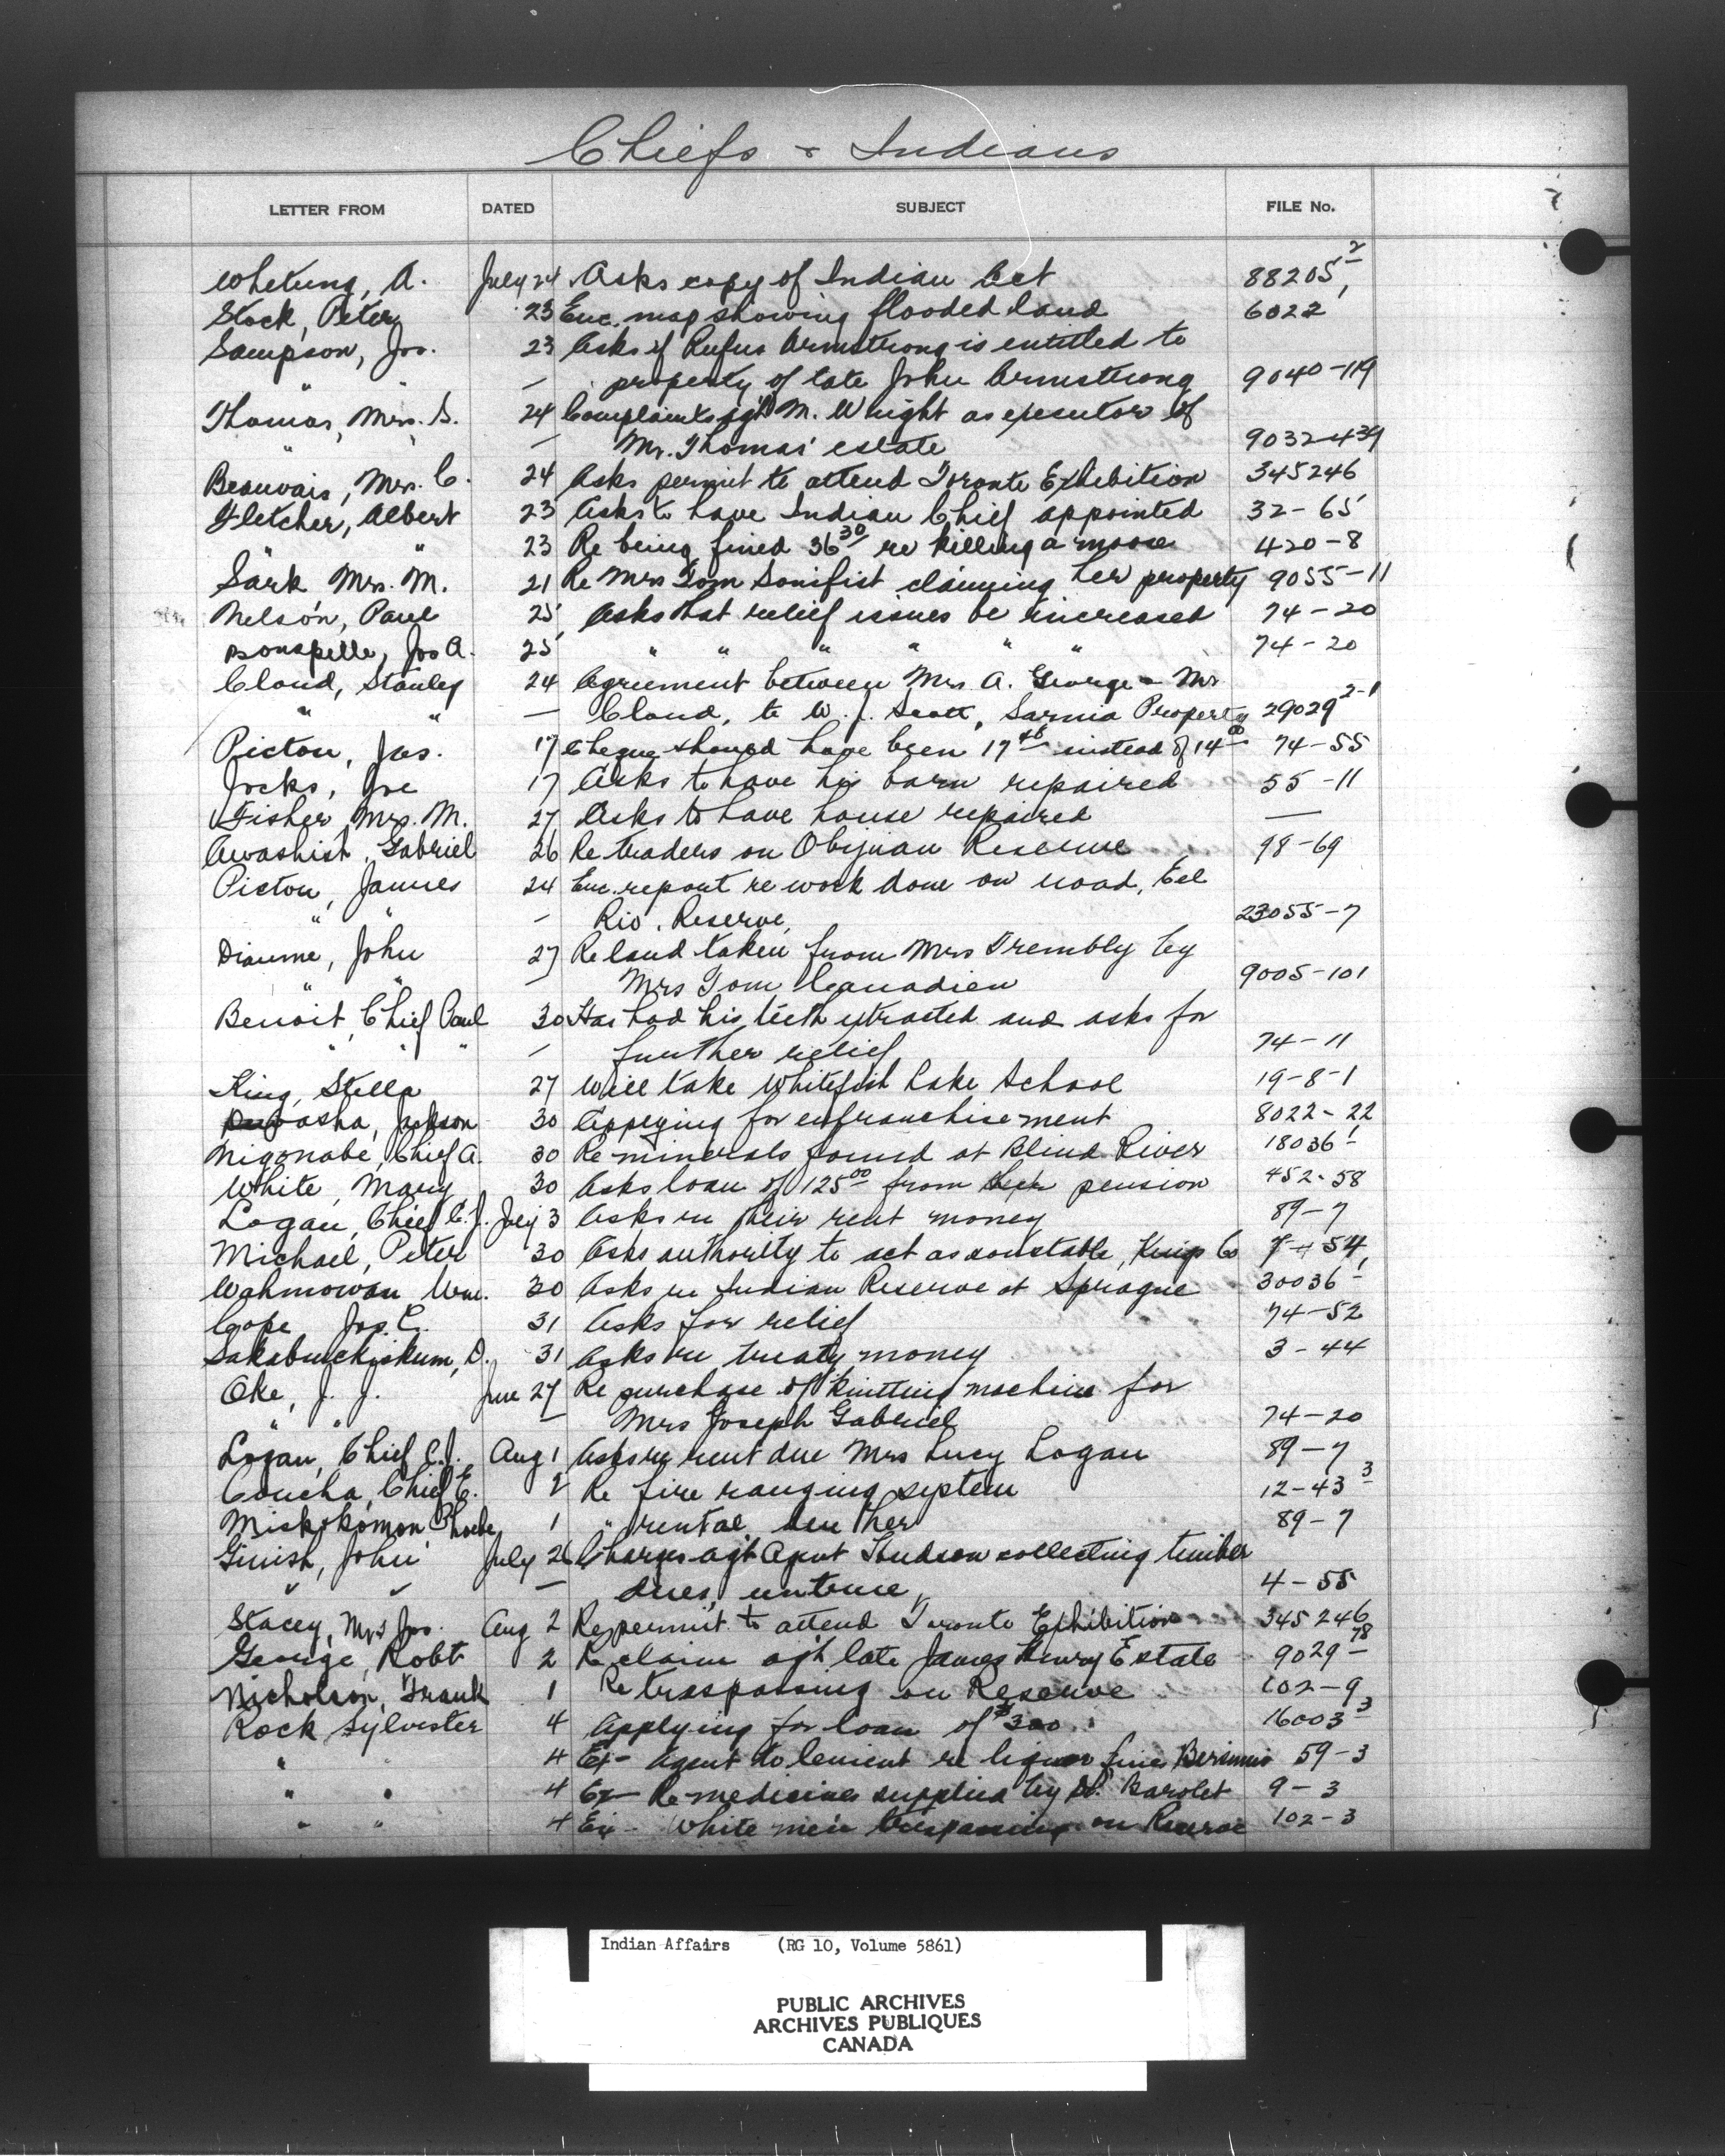 Chiefs & Indians
LETTER FROM DATED SUBJECT FILE No.
Whetung, A. July 24 Asks copy of Indian Act 88205-2
Stock, Peter 23 Enc. map showing flooded land 6022
Sampson, Jos. 23 Asks if Rufus Armstrong is entitled to
" " — property of late John Armstrong 9040-119
Thomas, Mrs. S. 24 Complaints agt M. Wright as executor of
" — Mr. Thomas' estate 9032-439
Beauvais, Mrs. C. 24 Asks permit to attend Toronto Exhibition 345246
Fletcher, Albert 23 Asks to have Indian Chief appointed 32-65
" " 23 Re being fined 36 30 re killing a moose 420-8
Sark Mrs. M. 21 Re Mrs Tom Sonifist claiming her property 9055-11
Nelson, Paul 25 Asks that relief issues be increased 74-20
Bonspille, Jos A. 25 " " " " " " 74-20
Cloud, Stanley 24 Agreement between Mrs A. George & Mr
" " — Cloud, to W. J. Scott, Sarnia Property 29029 2-1
Picton, Jas. 17 Cheque should have been 17 48 instead of 14 00 74-55
Jocks, Joe 17 Asks to have his barn repaired 55-11
Fisher, Mrs. M. 27 Asks to have house repaired —
Awashish, Gabriel 26 Re traders on Obijuan Reserve 98-69
Picton, James 24 Enc. report re work done on road, Eel
" " — Riv. Reserve, 23055-7
Diaume, John 27 Re land taken from Mrs Trembly by
" " — Mrs Tom Canadien 9005-101
Benoit, Chief Paul 30 Has had his teeth extracted and asks for
" " " — further relief 74-11
King, Stella 27 Will take Whitefish Lake School 19-8-1
Jackson 30 Applying for enfranchisement 8022-22
Nigonabe, Chief A. 30 Re minerals found at Blind River 18036-1
White, Mary 30 Asks loan of 125 00 from pension 452-58
Logan, Chief C. J. July 3 Asks re their rent money 89-7
Michael, Peter 30 Asks authority to act as constable, Kings Co 7-54
Wahmowan Wm. 30 Asks re Indian Reserve at Sprague 30036-1
Cope Jos. C. 31 Asks for relief 74-52
Sakabuckiskum, D. 31 Asks re treaty money 3-44
Oke, J. J. June 27 Re purchase of knitting machine for
" " — Mrs Joseph Gabriel 74-20
Logan, Chief C. J. Aug 1 Asks re rent due Mrs Lucy Logan 89-7
Coucha, Chief E. 2 Re fire ranging system 12-43 3
Miskokomon, Phoebe 1 " rental due her 89-7
Ginish, John July 26 Charges agt Agent Hudson collecting timber
" " — dues, untrue, 4-55
Stacey, Mrs Jos. Aug 2 Re permit to attend Toronto Exhibition 345246
George, Robt 2 Re claim agt late James Henry Estate 9029-78
Nicholson, Frank 1 Re traspassing on Reserve 102-9
Rock Sylvester 4 Applying for loan of $300. 16003-3
" " 4 Ex- Agent to lenient re liquor fines Bersimis 59-3
" " 4 Ex- Re medicines supplied by Dr. Barolet 9-3
" " 4 Ex- White men trespassing on Reserve 102-3
Indian Affairs (RG 10, Volume 5861)
PUBLIC ARCHIVES
ARCHIVES PUBLIQUES
CANADA